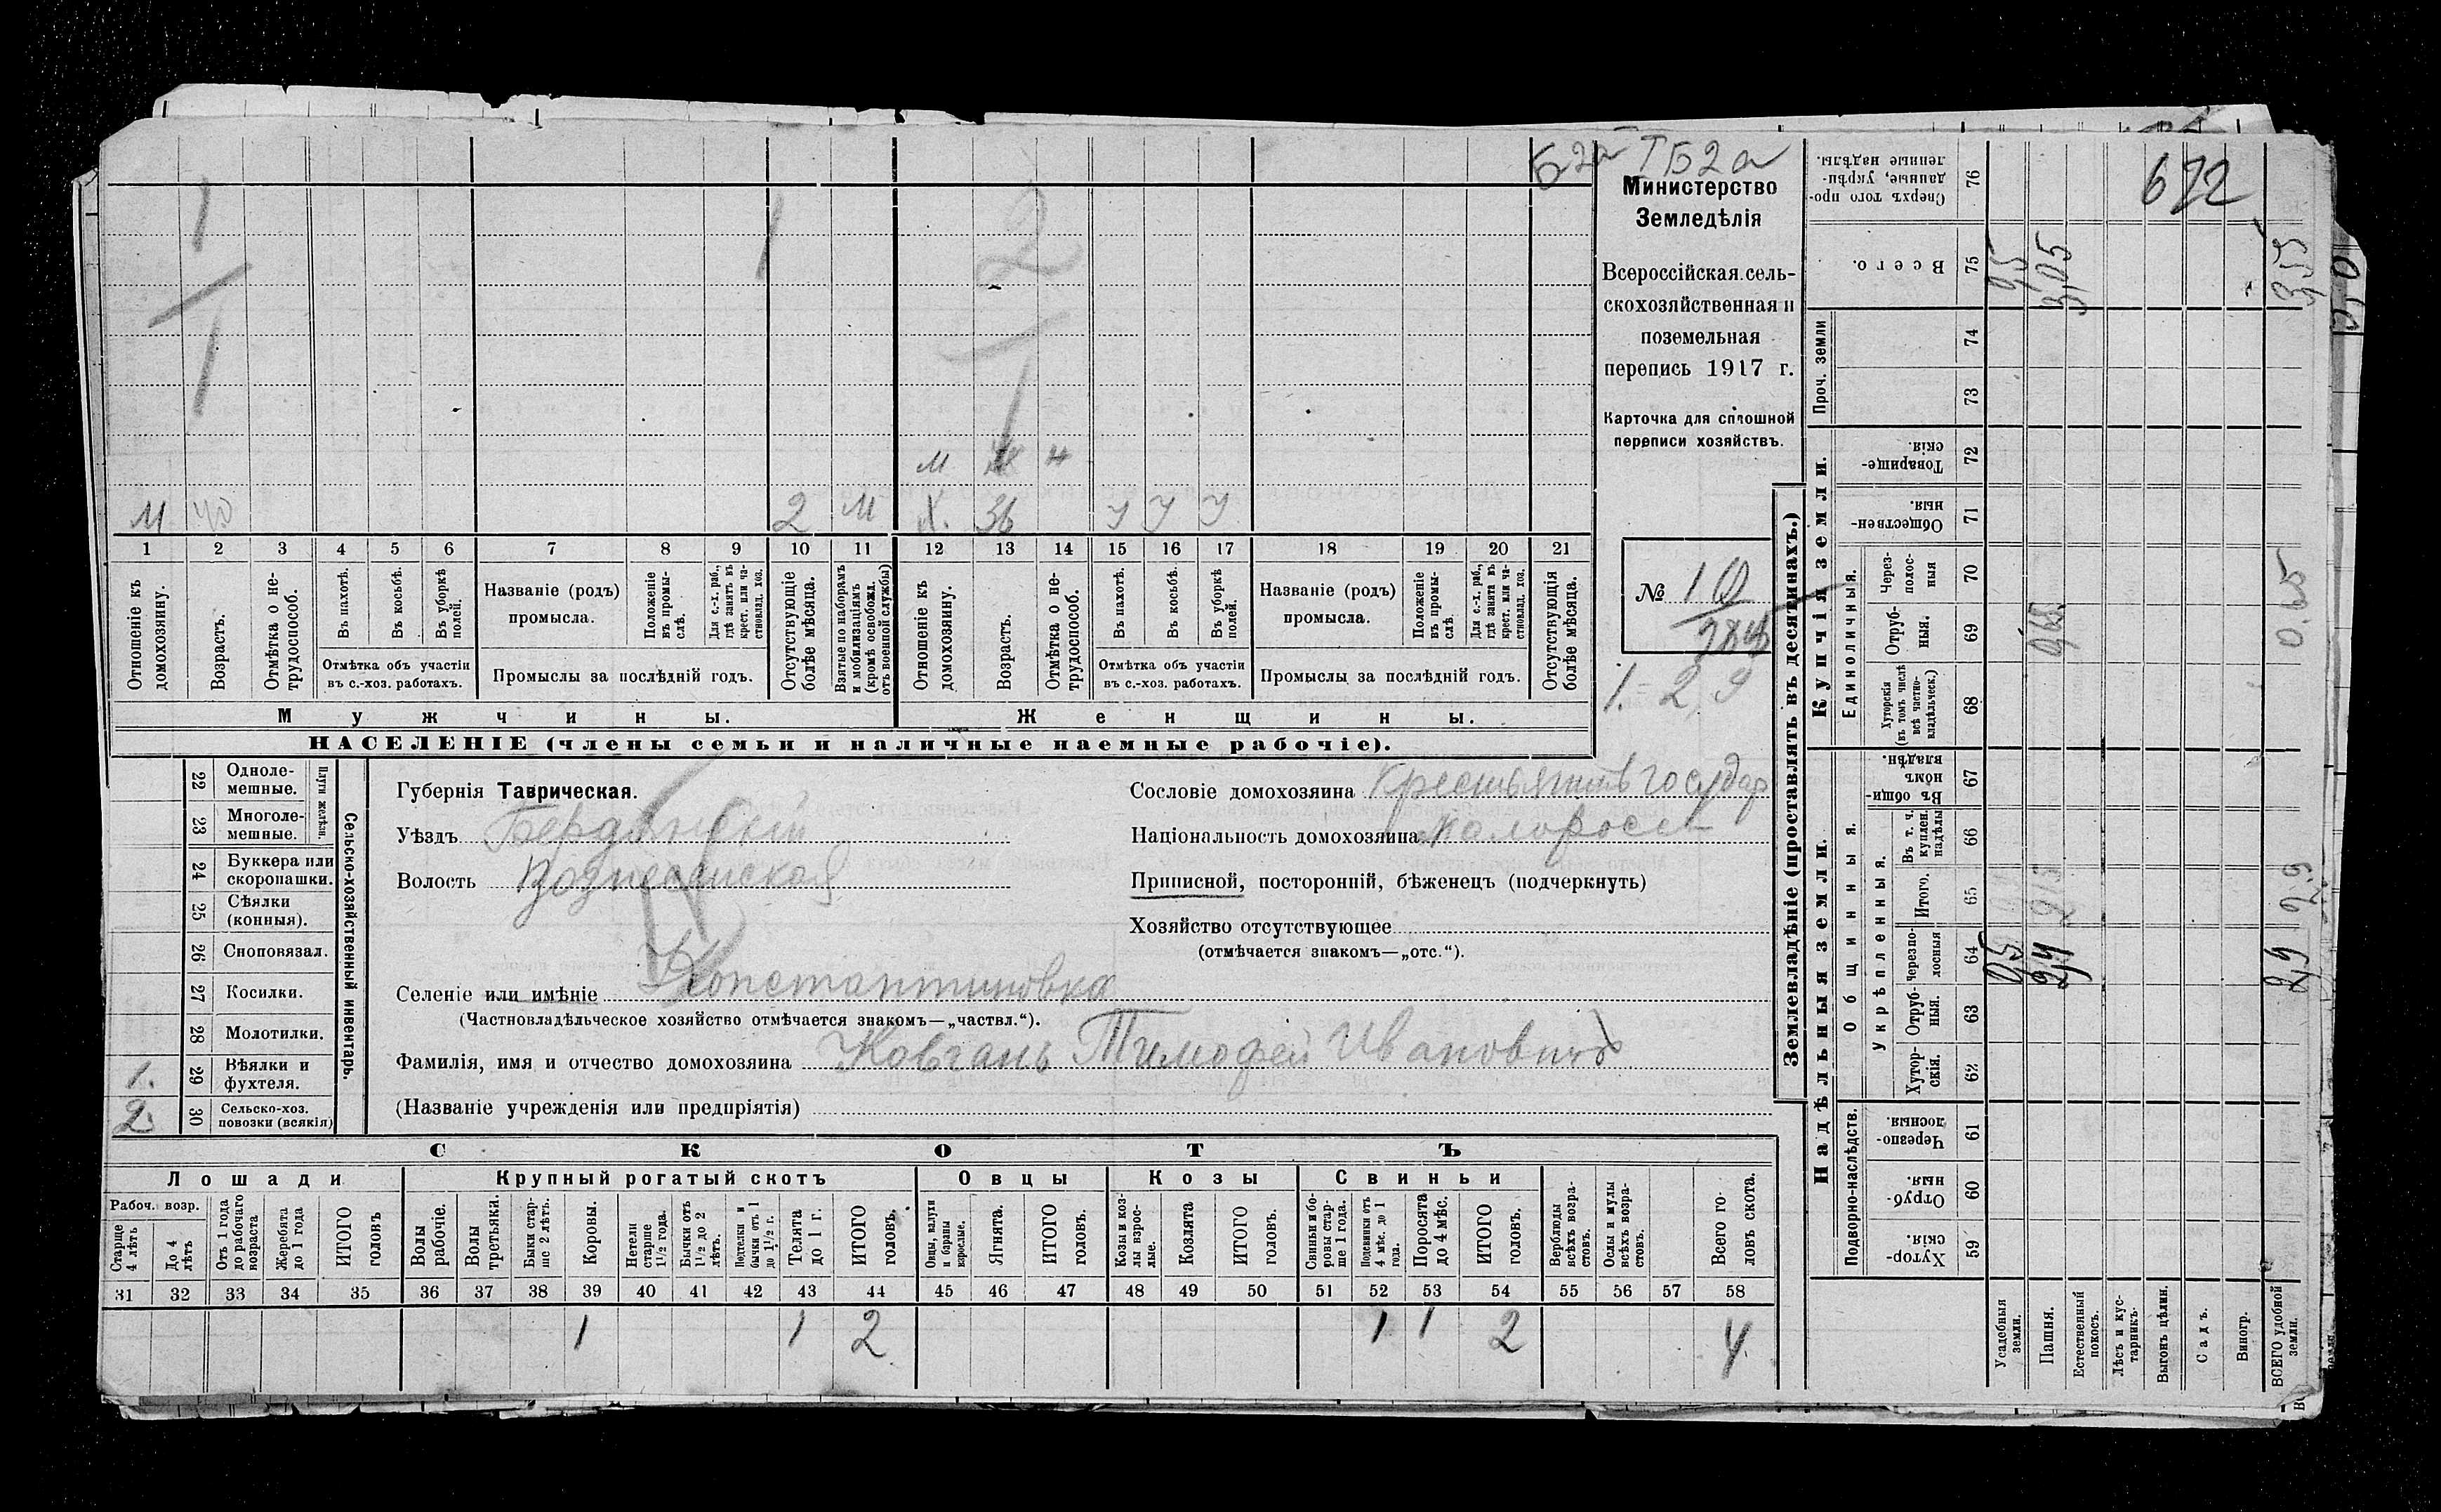 Б2а
ТБ2а
622
Министерство
Земледѣлія
Всероссійская сель-
скохозяйственная и
поземельная
перепись 1917 г.
Карточка для сплошной
переписи хозяйствъ.
№ 10
1. 2 9
1 1 2
1 1
М Ж Н
М 40 2 М Х. 36 У У У
1 2 3 4 5 6 7 8 9 10 11 12 13 14 15 16 17 18 19 20 21
Отношеніе къ домохозяину.
Возрастъ.
Отмѣтка о не-трудоспособ.
Въ пахотѣ.
Въ косьбѣ.
Въ уборкѣ полей.
Отмѣтка объ участіи въ с.-хоз. работахъ.
Названіе (родъ) промысла.
Положеніе въ промы-слѣ.
Для с.-х. раб., гдѣ занятъ въ крест. или ча-стновлад. хоз.
Промыслы за послѣдній годъ.
Отсутствующіе болѣе мѣсяца.
Взятые по наборамъ и мобилизаціямъ (кромѣ освобожд. отъ военной службы)
Отношеніе къ домохозяину.
Возрастъ.
Отмѣтка о не-трудоспособ.
Въ пахотѣ.
Въ косьбѣ.
Въ уборкѣ полей.
Отмѣтка объ участіи въ с.-хоз. работахъ.
Названіе (родъ) промысла.
Положеніе въ промы-слѣ.
Для с.-х. раб., гдѣ занята въ крест. или ча-стновлад. хоз.
Промыслы за послѣдній годъ.
Отсутствующія болѣе мѣсяца.
Мужчины.
Женщины.
НАСЕЛЕНІЕ (члены семьи и наличные наемные рабочіе).
Сельско-хозяйственный инвентарь.
Плуги желѣзн.
22 Одноле-мешные.
23 Многоле-мешные.
24 Буккера или скоропашки.
25 Сѣялки (конныя).
26 Сноповязал.
27 Косилки.
28 Молотилки.
1. 29 Вѣялки и фухтеля.
2. 30 Сельско-хоз. повозки (всякія)
Губернія Таврическая.
Уѣздъ Бердянскій
Волость Вознесенская
Селеніе или имѣніе Константиновка
(Частновладѣльческое хозяйство отмѣчается знакомъ—„частвл.“).
Фамилія, имя и отчество домохозяина Ковгань Тимофей Ивановичъ
(Названіе учрежденія или предпріятія)
Сословіе домохозяина Крестьянинъ государ
Національность домохозяина Малоросс
Приписной, посторонній, бѣженецъ (подчеркнуть)
Хозяйство отсутствующее
(отмѣчается знакомъ—„отс.“).
СКОТЪ
Лошади
Крупный рогатый скотъ
Овцы
Козы
Свиньи
Рабоч. возр.
Старше 4 лѣтъ
До 4 лѣтъ
Отъ 1 года до рабочаго возраста
Жеребята до 1 года
ИТОГО головъ
Волы рабочіе.
Волы третьяки.
Быки стар-ше 2 лѣтъ.
Коровы.
Нетели старше 1 1/2 года.
Бычки отъ 1 1/2 до 2 лѣтъ.
Подтелки и бычки отъ 1 до 1 1/2 г.
Телята до 1 г.
ИТОГО головъ.
Овцы, валухи и бараны взрослые.
Ягнята.
ИТОГО головъ.
Козы и коз-лы взрос-лые.
Козлята
ИТОГО головъ.
Свиньи и бо-ровы стар-ше 1 года.
Подсвинки отъ 4 мѣс. до 1 года.
Поросята до 4 мѣс.
ИТОГО головъ.
Верблюды всѣхъ возра-стовъ.
Ослы и мулы всѣхъ возра-стовъ.
Всего го-ловъ скота.
31 32 33 34 35 36 37 38 39 40 41 42 43 44 45 46 47 48 49 50 51 52 53 54 55 56 57 58
1 1 2 1 1 2 4
Землевладѣніе (проставлять въ десятинахъ.)
Купчія земли.
Надѣльныя земли.
Проч. земли
Единоличныя.
Общинныя.
Укрѣпленныя.
Подворно-наслѣдств.
76 Сверхъ того про-данные, укрѣп-ленные надѣлы.
75 Всего. 95 3,05 3,55
74
73
72 Товарище-скія
71 Обществен-ныя.
70 Через-полос-ныя
69 Отруб-ныя. 0,65
68 Хуторскія (въ томъ числѣ всѣ частно-владѣльческ.)
67 Въ общи-номъ владѣн.
66 Въ т. ч. куплен. надѣлы
65 Итого. 2,9
64 Черезпо-лосныя 2,4 2,9
63 Отруб-ныя.
62 Хутор-скія.
61 Черезпо-лосныя
60 Отруб-ныя.
59 Хутор-скія.
Усадебныя земли.
Пашня.
Естественный покосъ.
Лѣсъ и кус-тарникъ.
Выгонъ цѣлин.
Садъ.
Виногр.
ВСЕГО удобной земли.